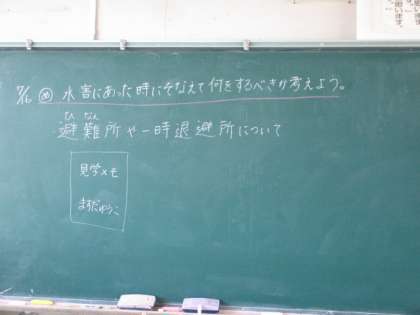 7/6 め 水害にあった時にそなえて何をするべきか考えよう。
ひ なん
・避難所や一時退避所について
見学メモ
ますだゆうこ